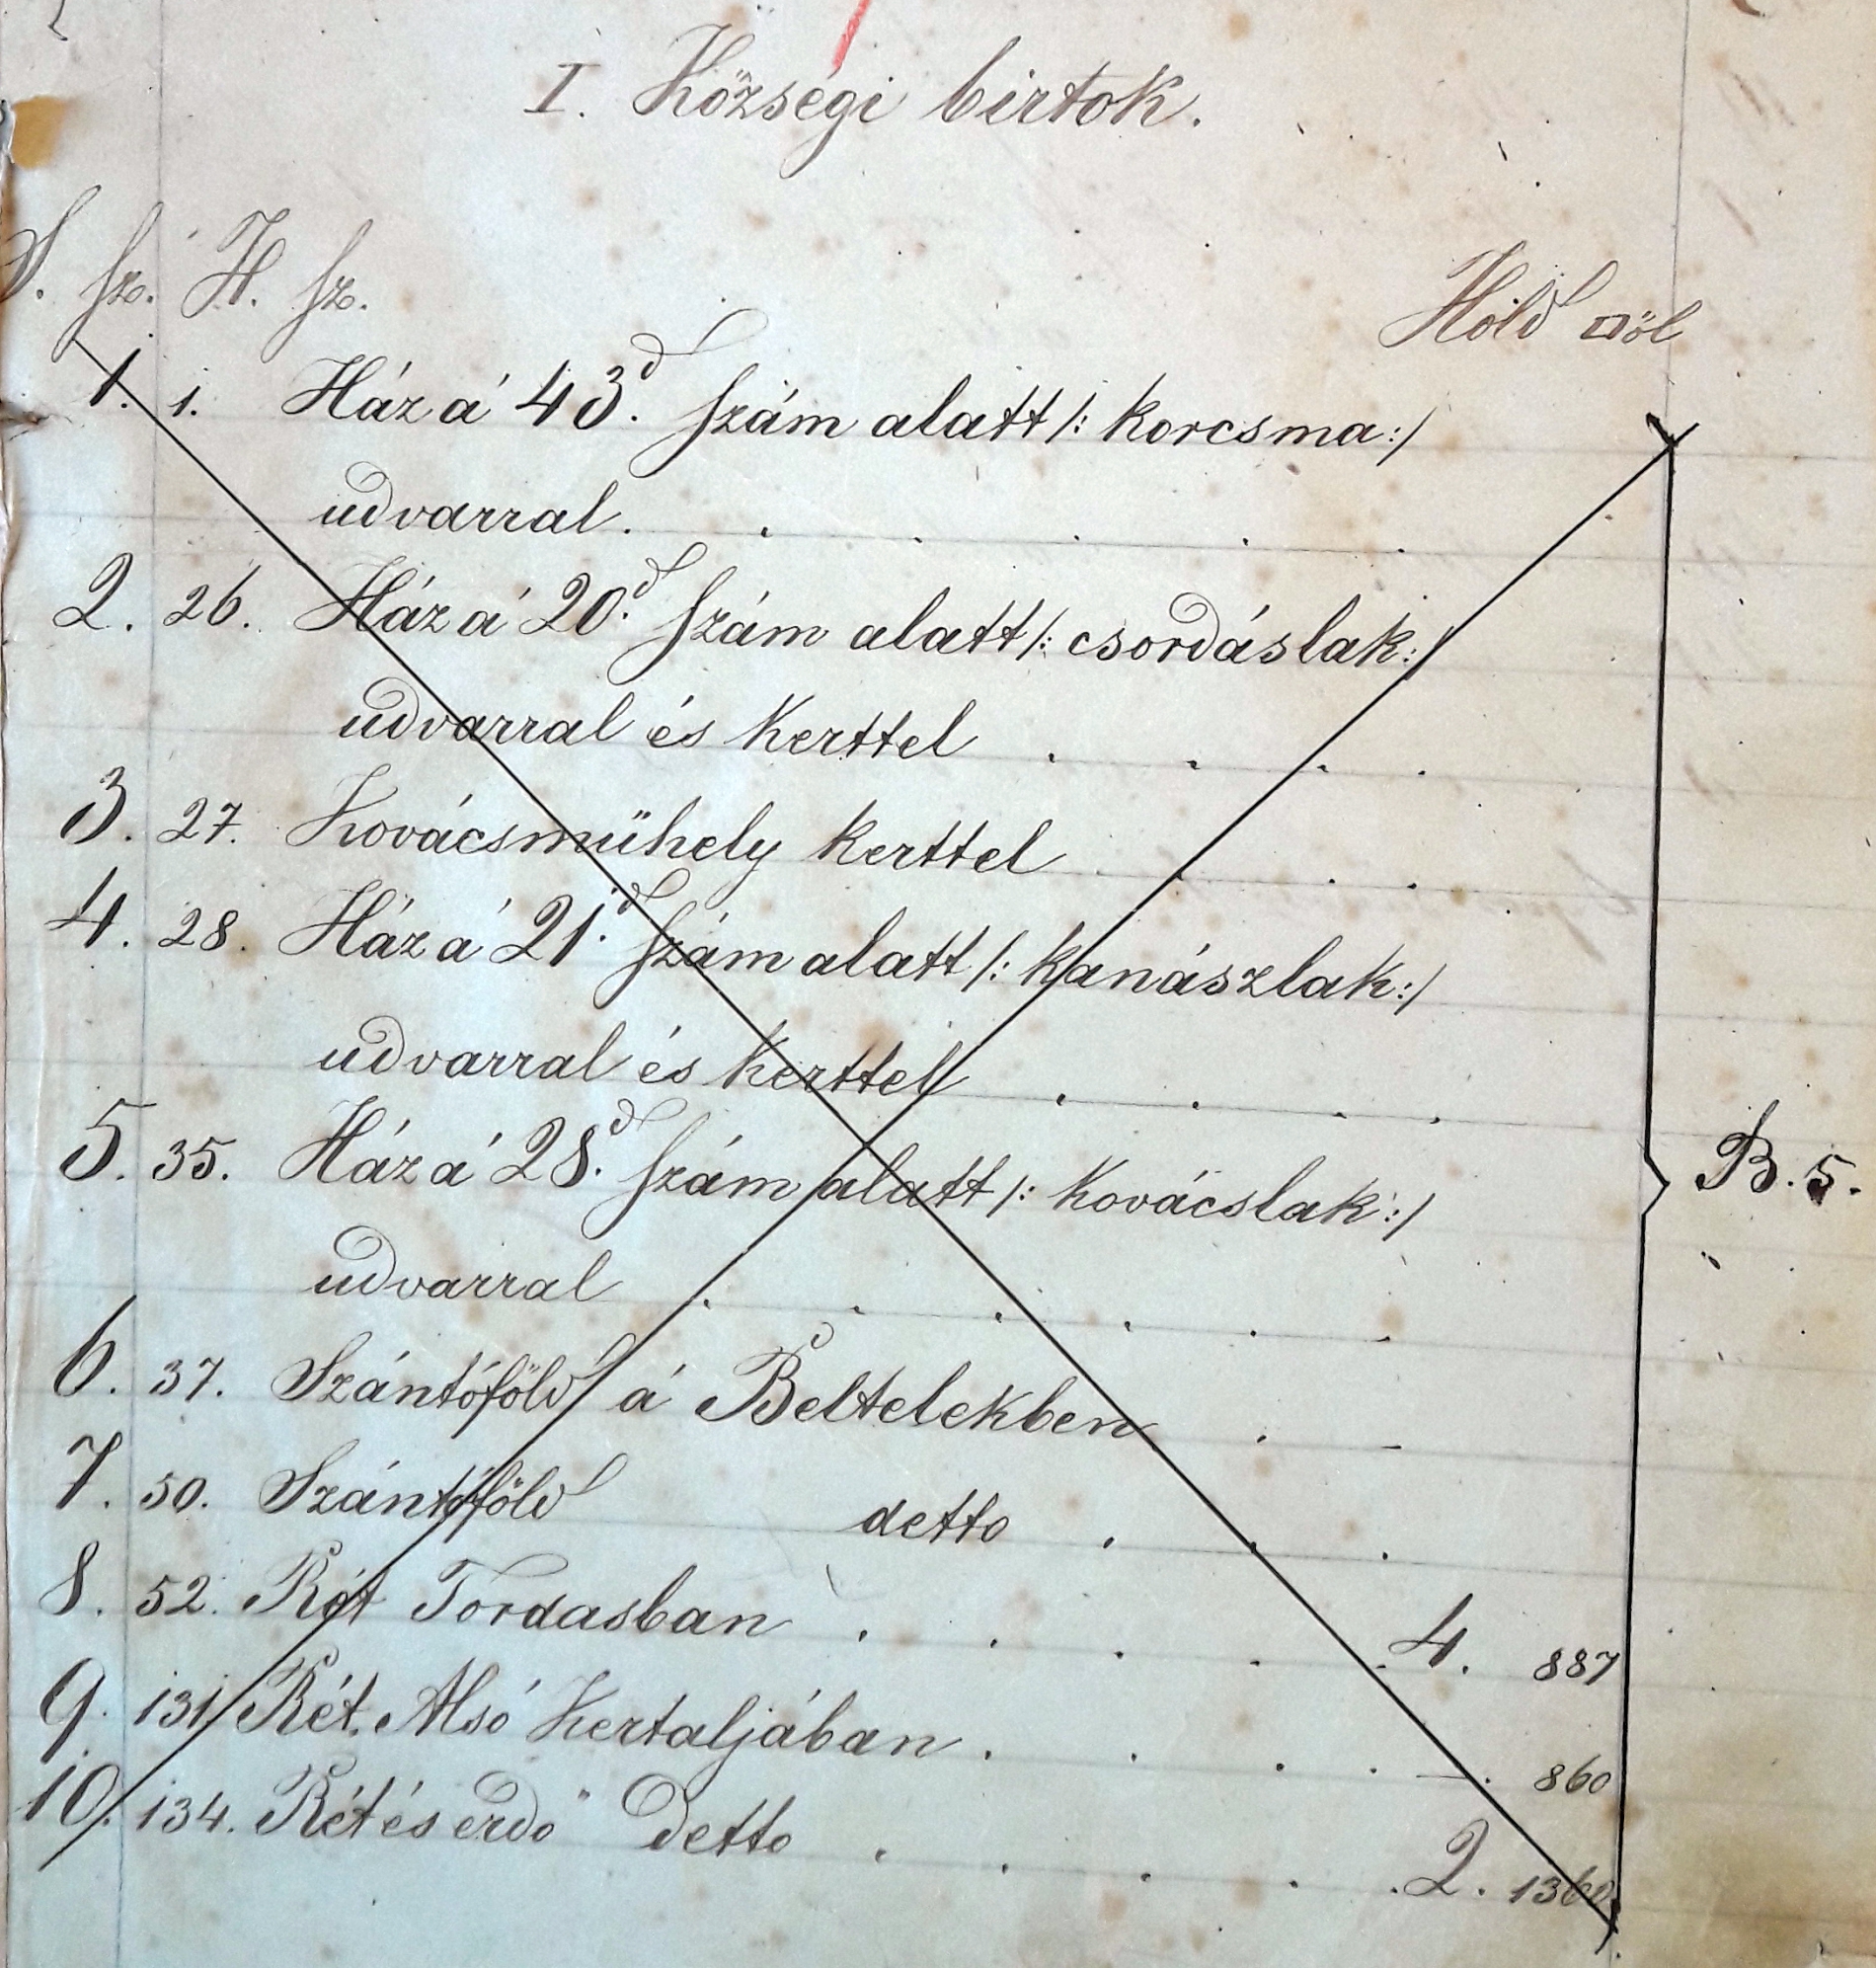 I. Községi birtok.
S. sz. H. sz. Hold □öl
1. 1. Ház á 43d. szám alatt /: korcsma :/
udvarral. . . . . . .
2. 26. Ház á 20d. szám alatt /: csordáslak :/
udvarral és kerttel . . . .
3. 27. Kovácsműhely kerttel . . . .
4. 28. Ház á 21d. szám alatt /: kanászlak :/
udvarral és kerttel . . . .
5. 35. Ház á 28d. szám alatt /: Kovácslak :/
B. 5.
udvarral . . . . . .
6. 37. Szántóföld á Beltelekben . .
7. 50. Szántóföld detto . . .
8. 52. Rét Tordasban . . . . . 4. 887
9. 131 Rét. Alsó Kertaljában . . . . —. 860
10. 134. Rét és erdő detto . . . . . 2. 1360